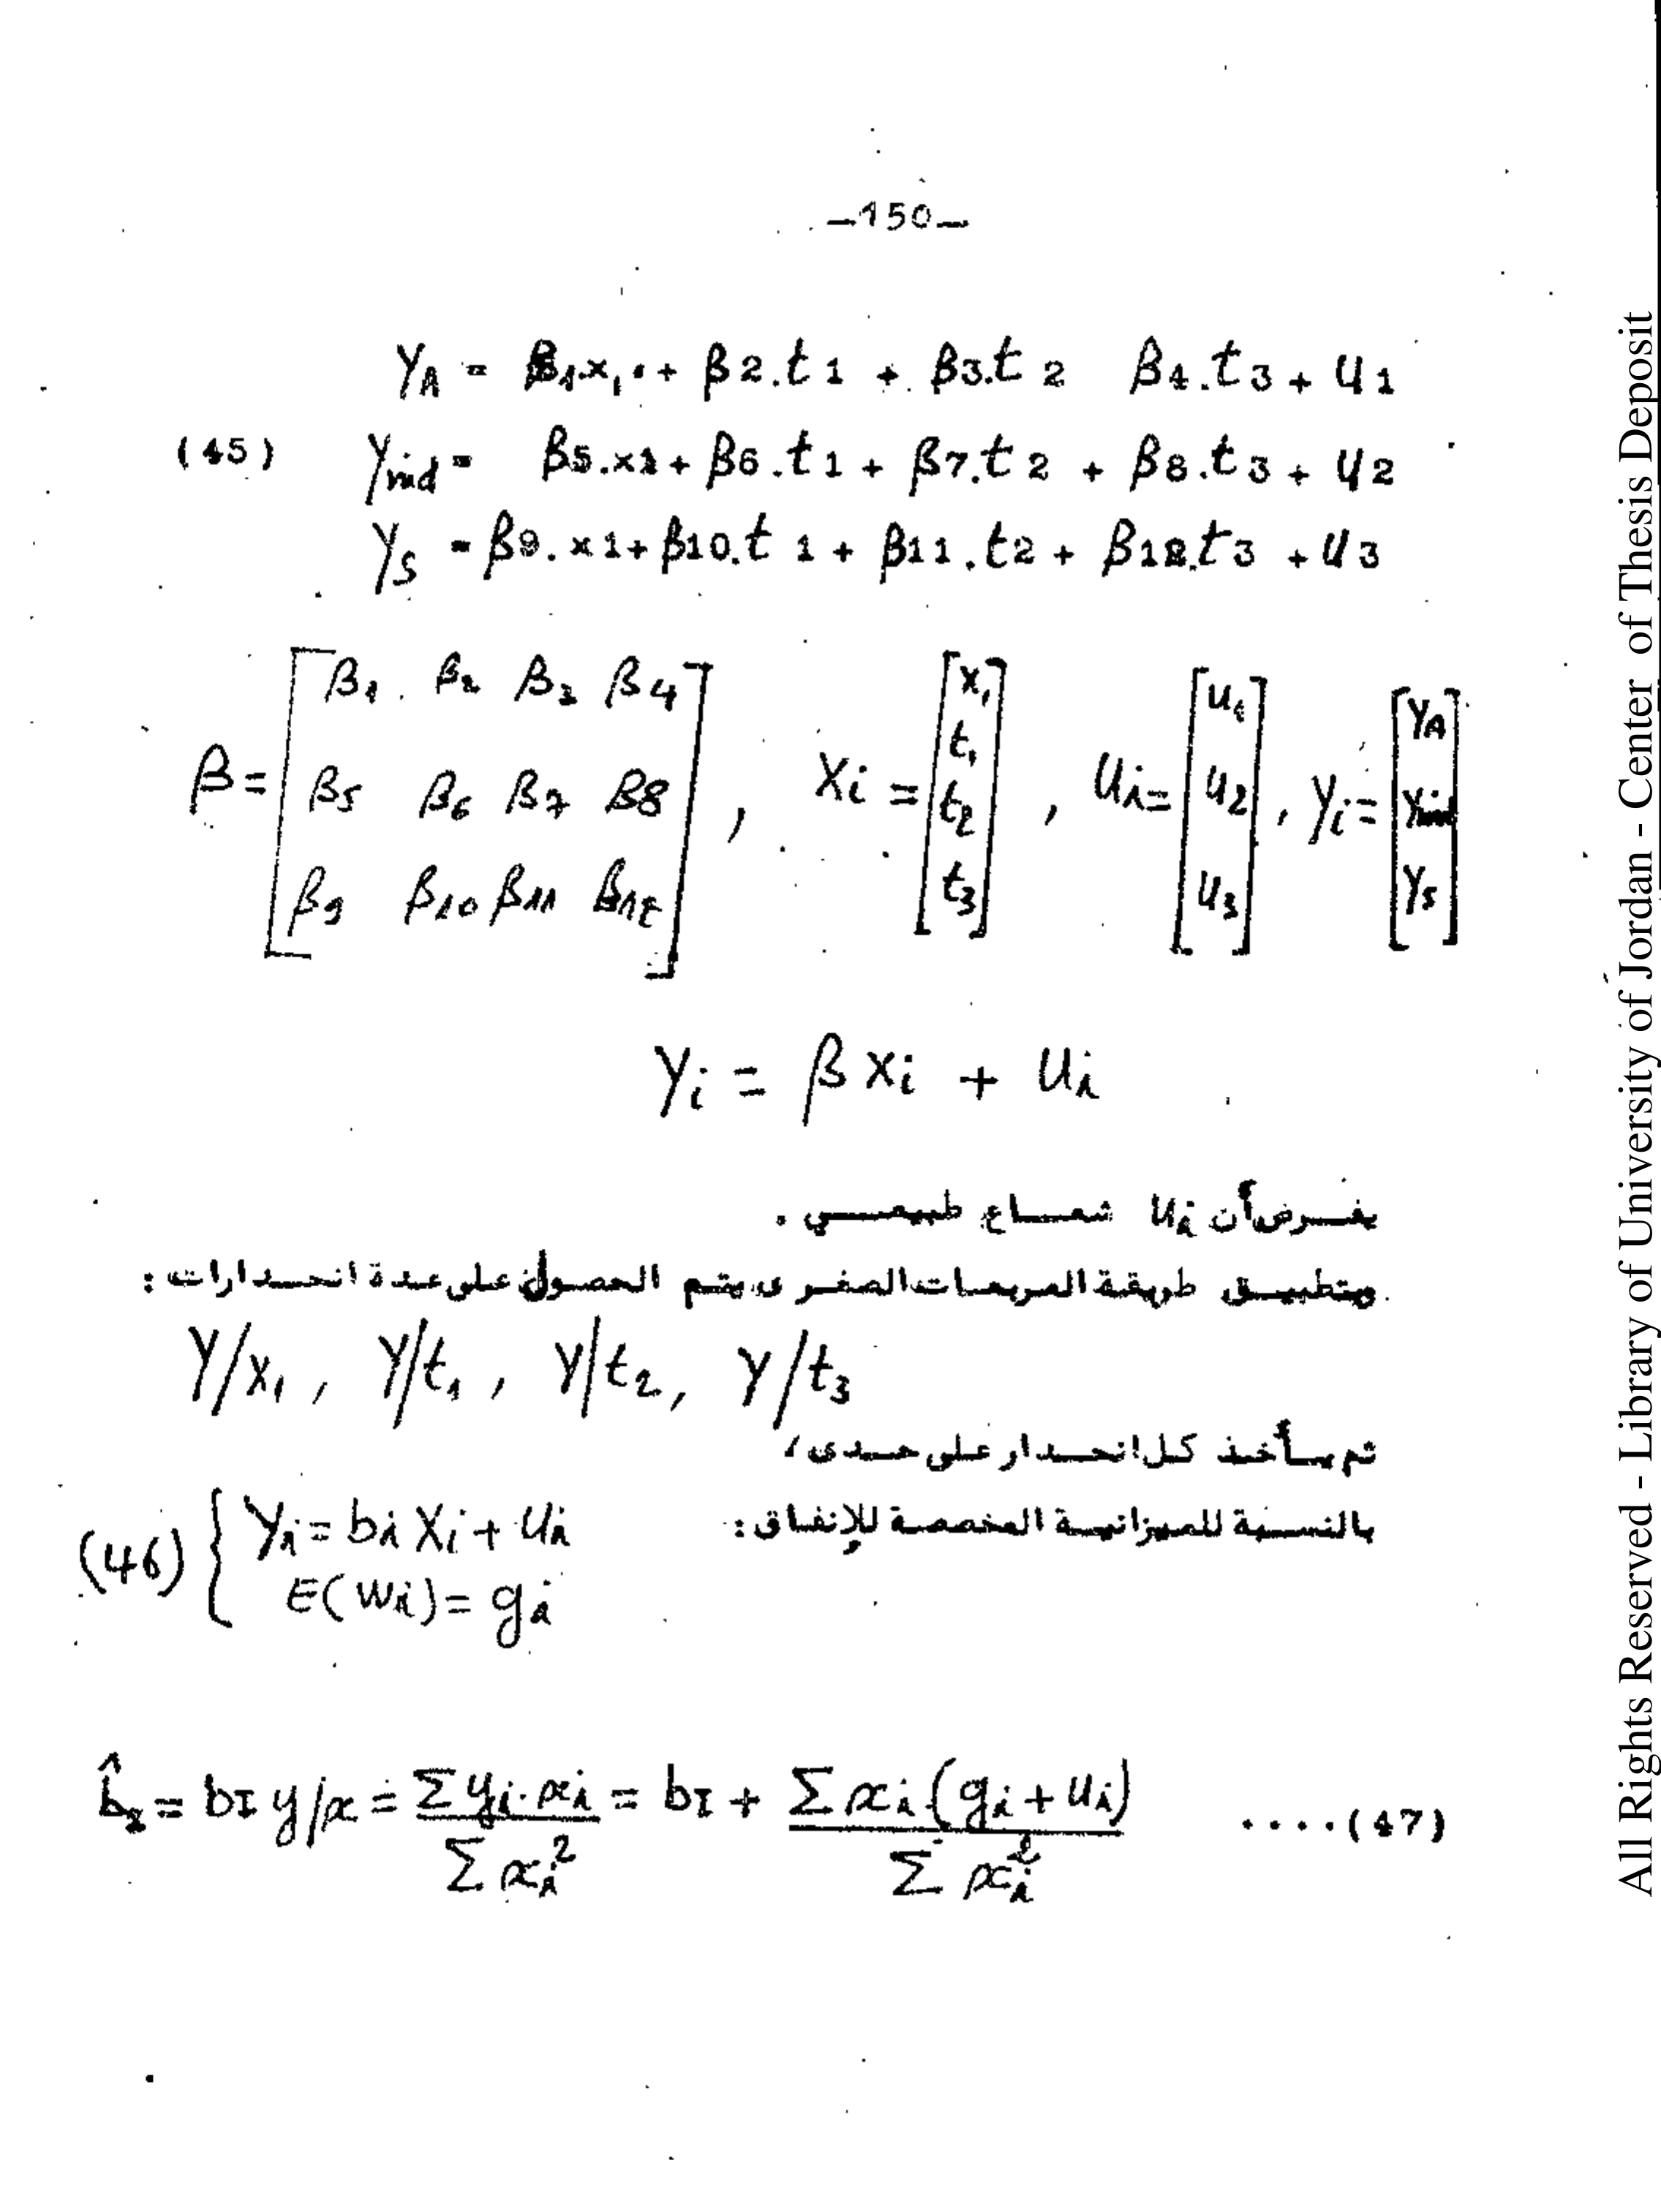 -150-
Y_A = β1.x1 + β2.t1 + β3.t2 β4.t3 + u1
(45) Y_ind = β5.x1 + β6.t1 + β7.t2 + β8.t3 + u2
Y_S = β9.x1 + β10.t1 + β11.t2 + β12.t3 + u3
β = [β1 β2 β3 β4 ; β5 β6 β7 β8 ; β9 β10 β11 β12] , Xi = [x1 ; t1 ; t2 ; t3] , Ui = [u1 ; u2 ; u3] , Yi = [YA ; Yind ; YS]
Yi = β Xi + Ui
بفرض أن Ui شعاع طبيعي .
وبتطبيق طريقة المربعات الصغرى يتم الحصول على عدة انحدارات :
Y/x1 , Y/t1 , Y/t2 , Y/t3
ثم يأخذ كل انحدار على حدى ،
بالنسبة للميزانية المخصصة للإنفاق :
(46) { Yi = bi Xi + Ui
E(Wi) = gi
b̂I = bI y/x = Σ yi.xi / Σ xi² = bI + Σ xi(gi + Ui) / Σ xi² ....(47)
All Rights Reserved - Library of University of Jordan - Center of Thesis Deposit